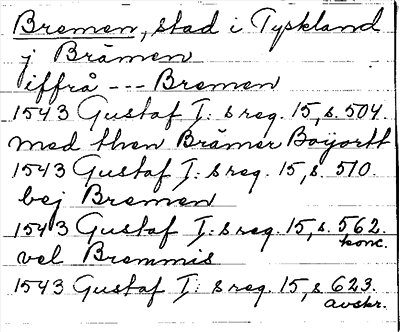 Bremen, stad i Tyskland
j Brämen
iffrå --- Bremen
1543 Gustaf I:s reg. 15, s. 504.
med then Brämer Boyortt
1543 Gustaf I:s reg. 15, s. 510.
bej Bremen
1543 Gustaf I:s reg. 15, s. 562.
konc.
vel Bremmis
1543 Gustaf I:s reg. 15, s. 623.
avskr.